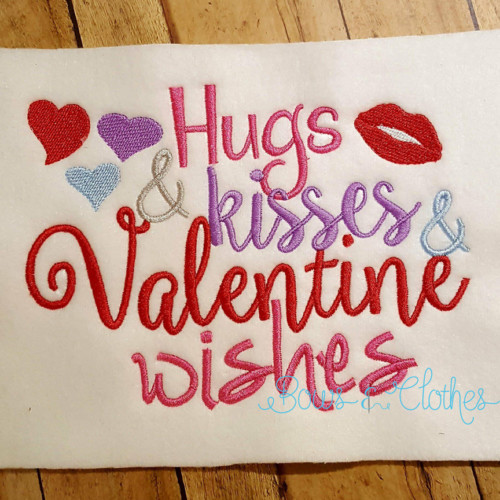 Hugs
& kisses &
Valentine
wishes
Bows & Clothes